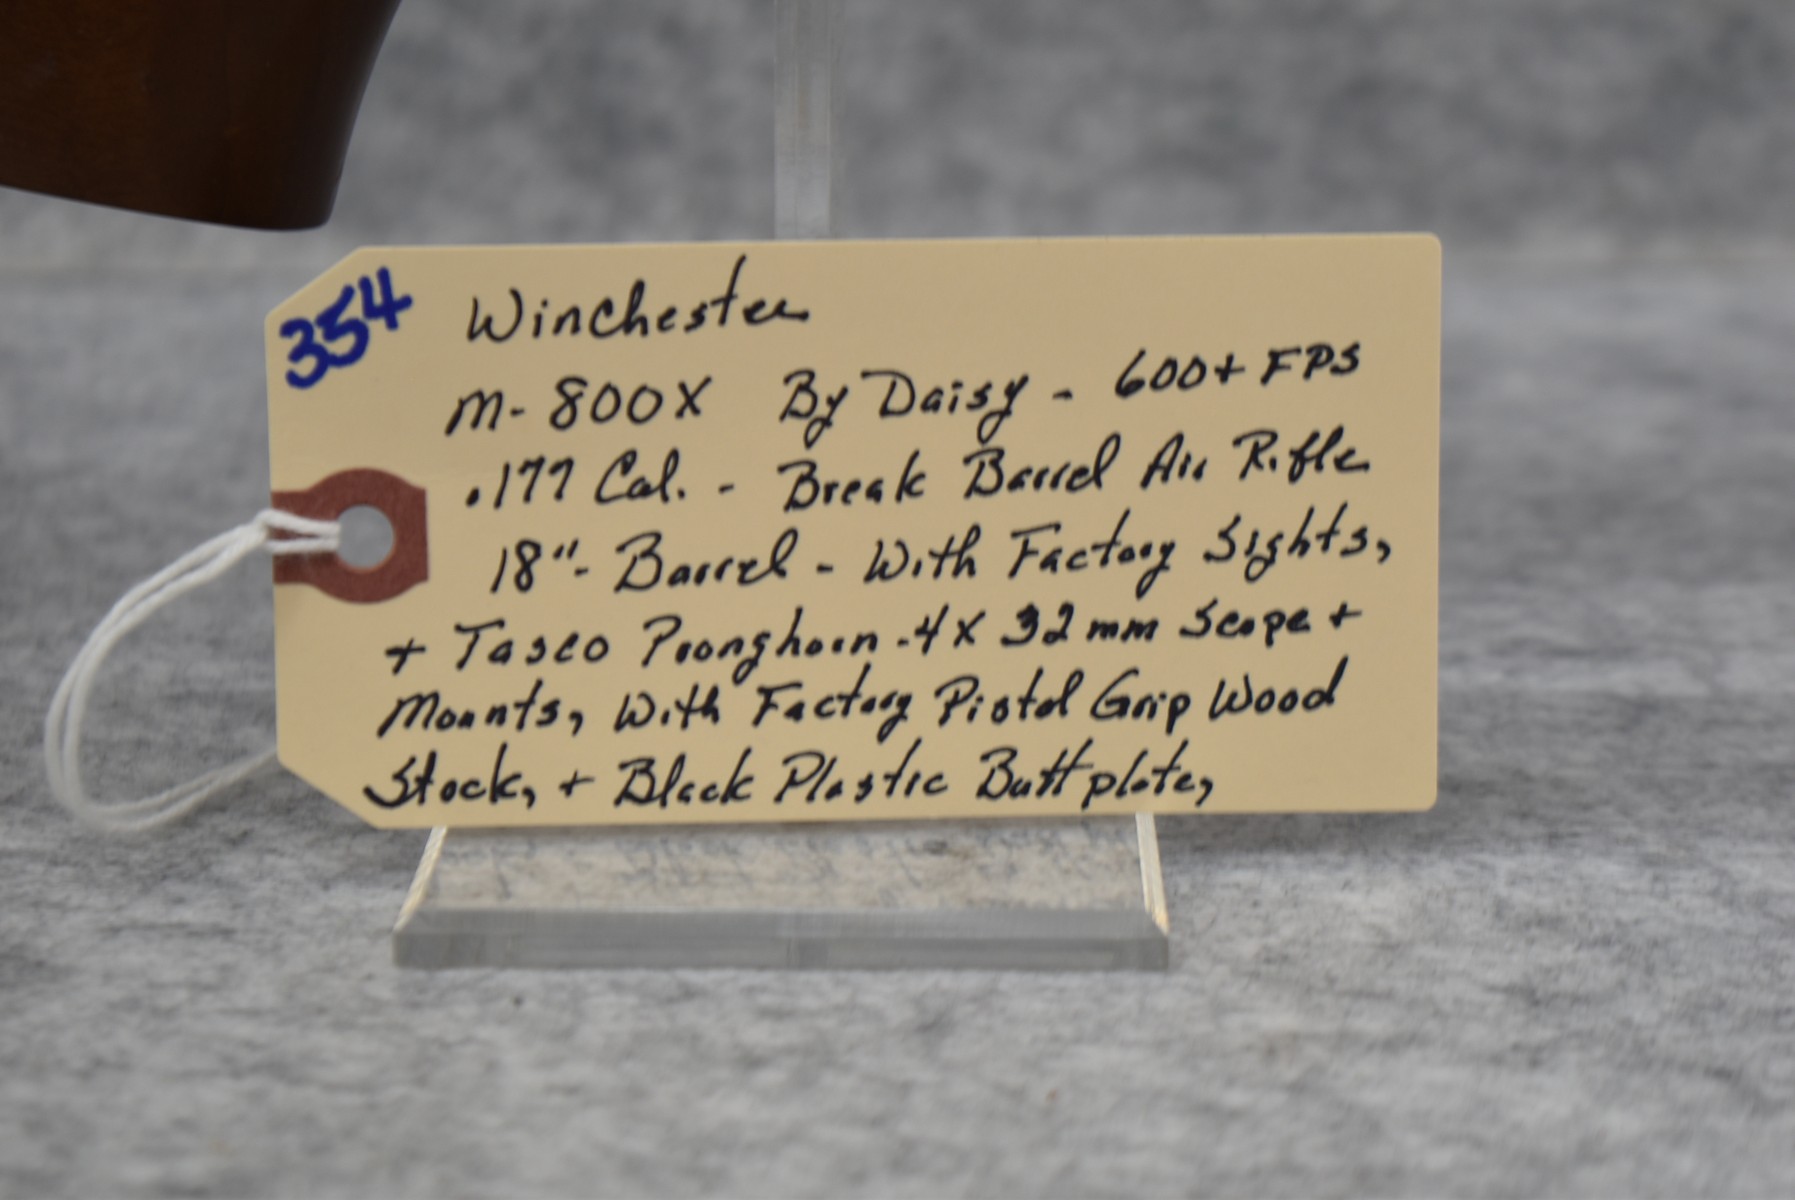 354
Winchester
M-800X By Daisy - 600+ FPS
.177 Cal. - Break Barrel Air Rifle
18"- Barrel - With Factory Sights,
+ Tasco Pronghorn -4X 32mm Scope +
Mounts, With Factory Pistol Grip Wood
Stock, + Black Plastic Buttplate,